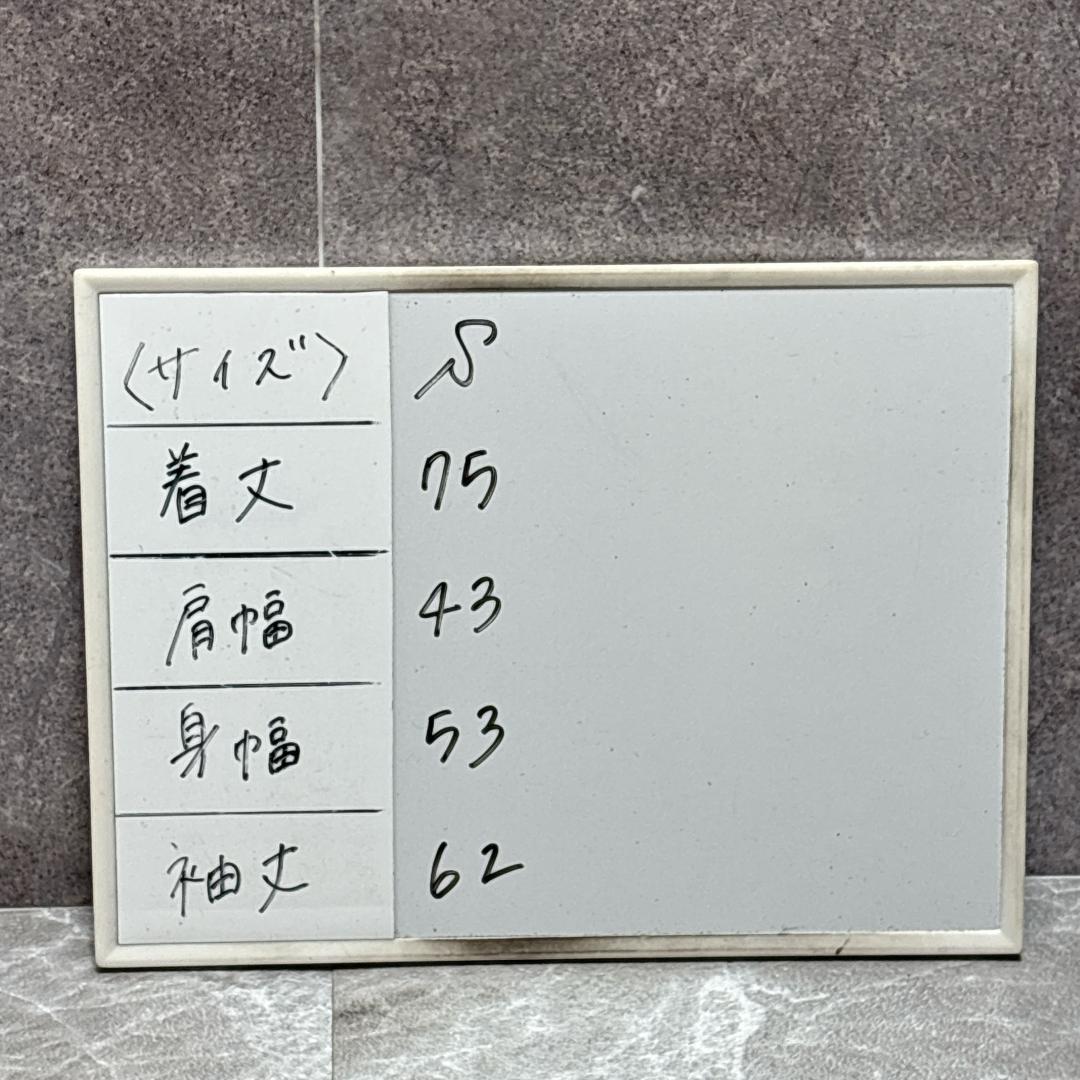 〈サイズ〉 S
着丈 75
肩幅 43
身幅 53
袖丈 62